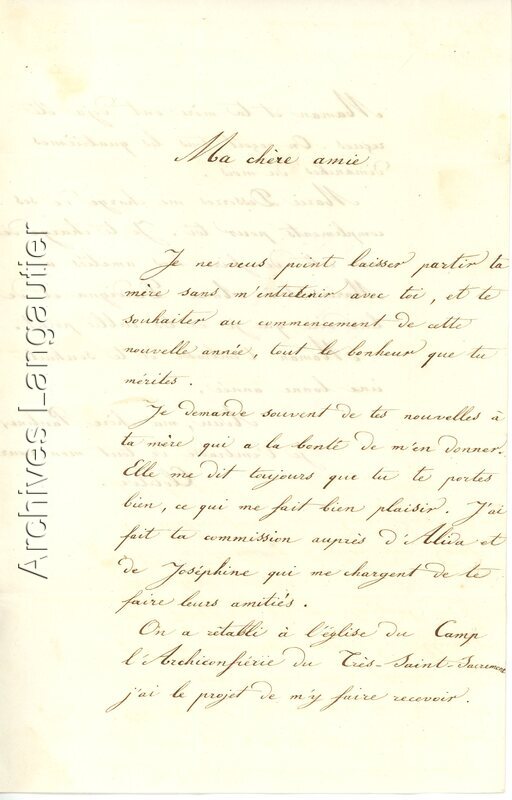 Ma chère amie
Je ne veus point laisser partir ta
mère sans m'entretenir avec toi, et te
souhaiter au commencement de cette
nouvelle année, tout le bonheur que tu
mérites.
Je demande souvent de tes nouvelles à
ta mère qui a la bonté de m'en donner.
Elle me dit toujours que tu te portes
bien, ce qui me fait bien plaisir. J'ai
fait ta commission auprès d'Alida et
de Joséphine qui me chargent de te
faire leurs amitiés.
On a rétabli à l'église du Camp
l'Archiconfrérie du Très-Saint-Sacrement
j'ai le projet de m'y faire recevoir.
Archives Langautier